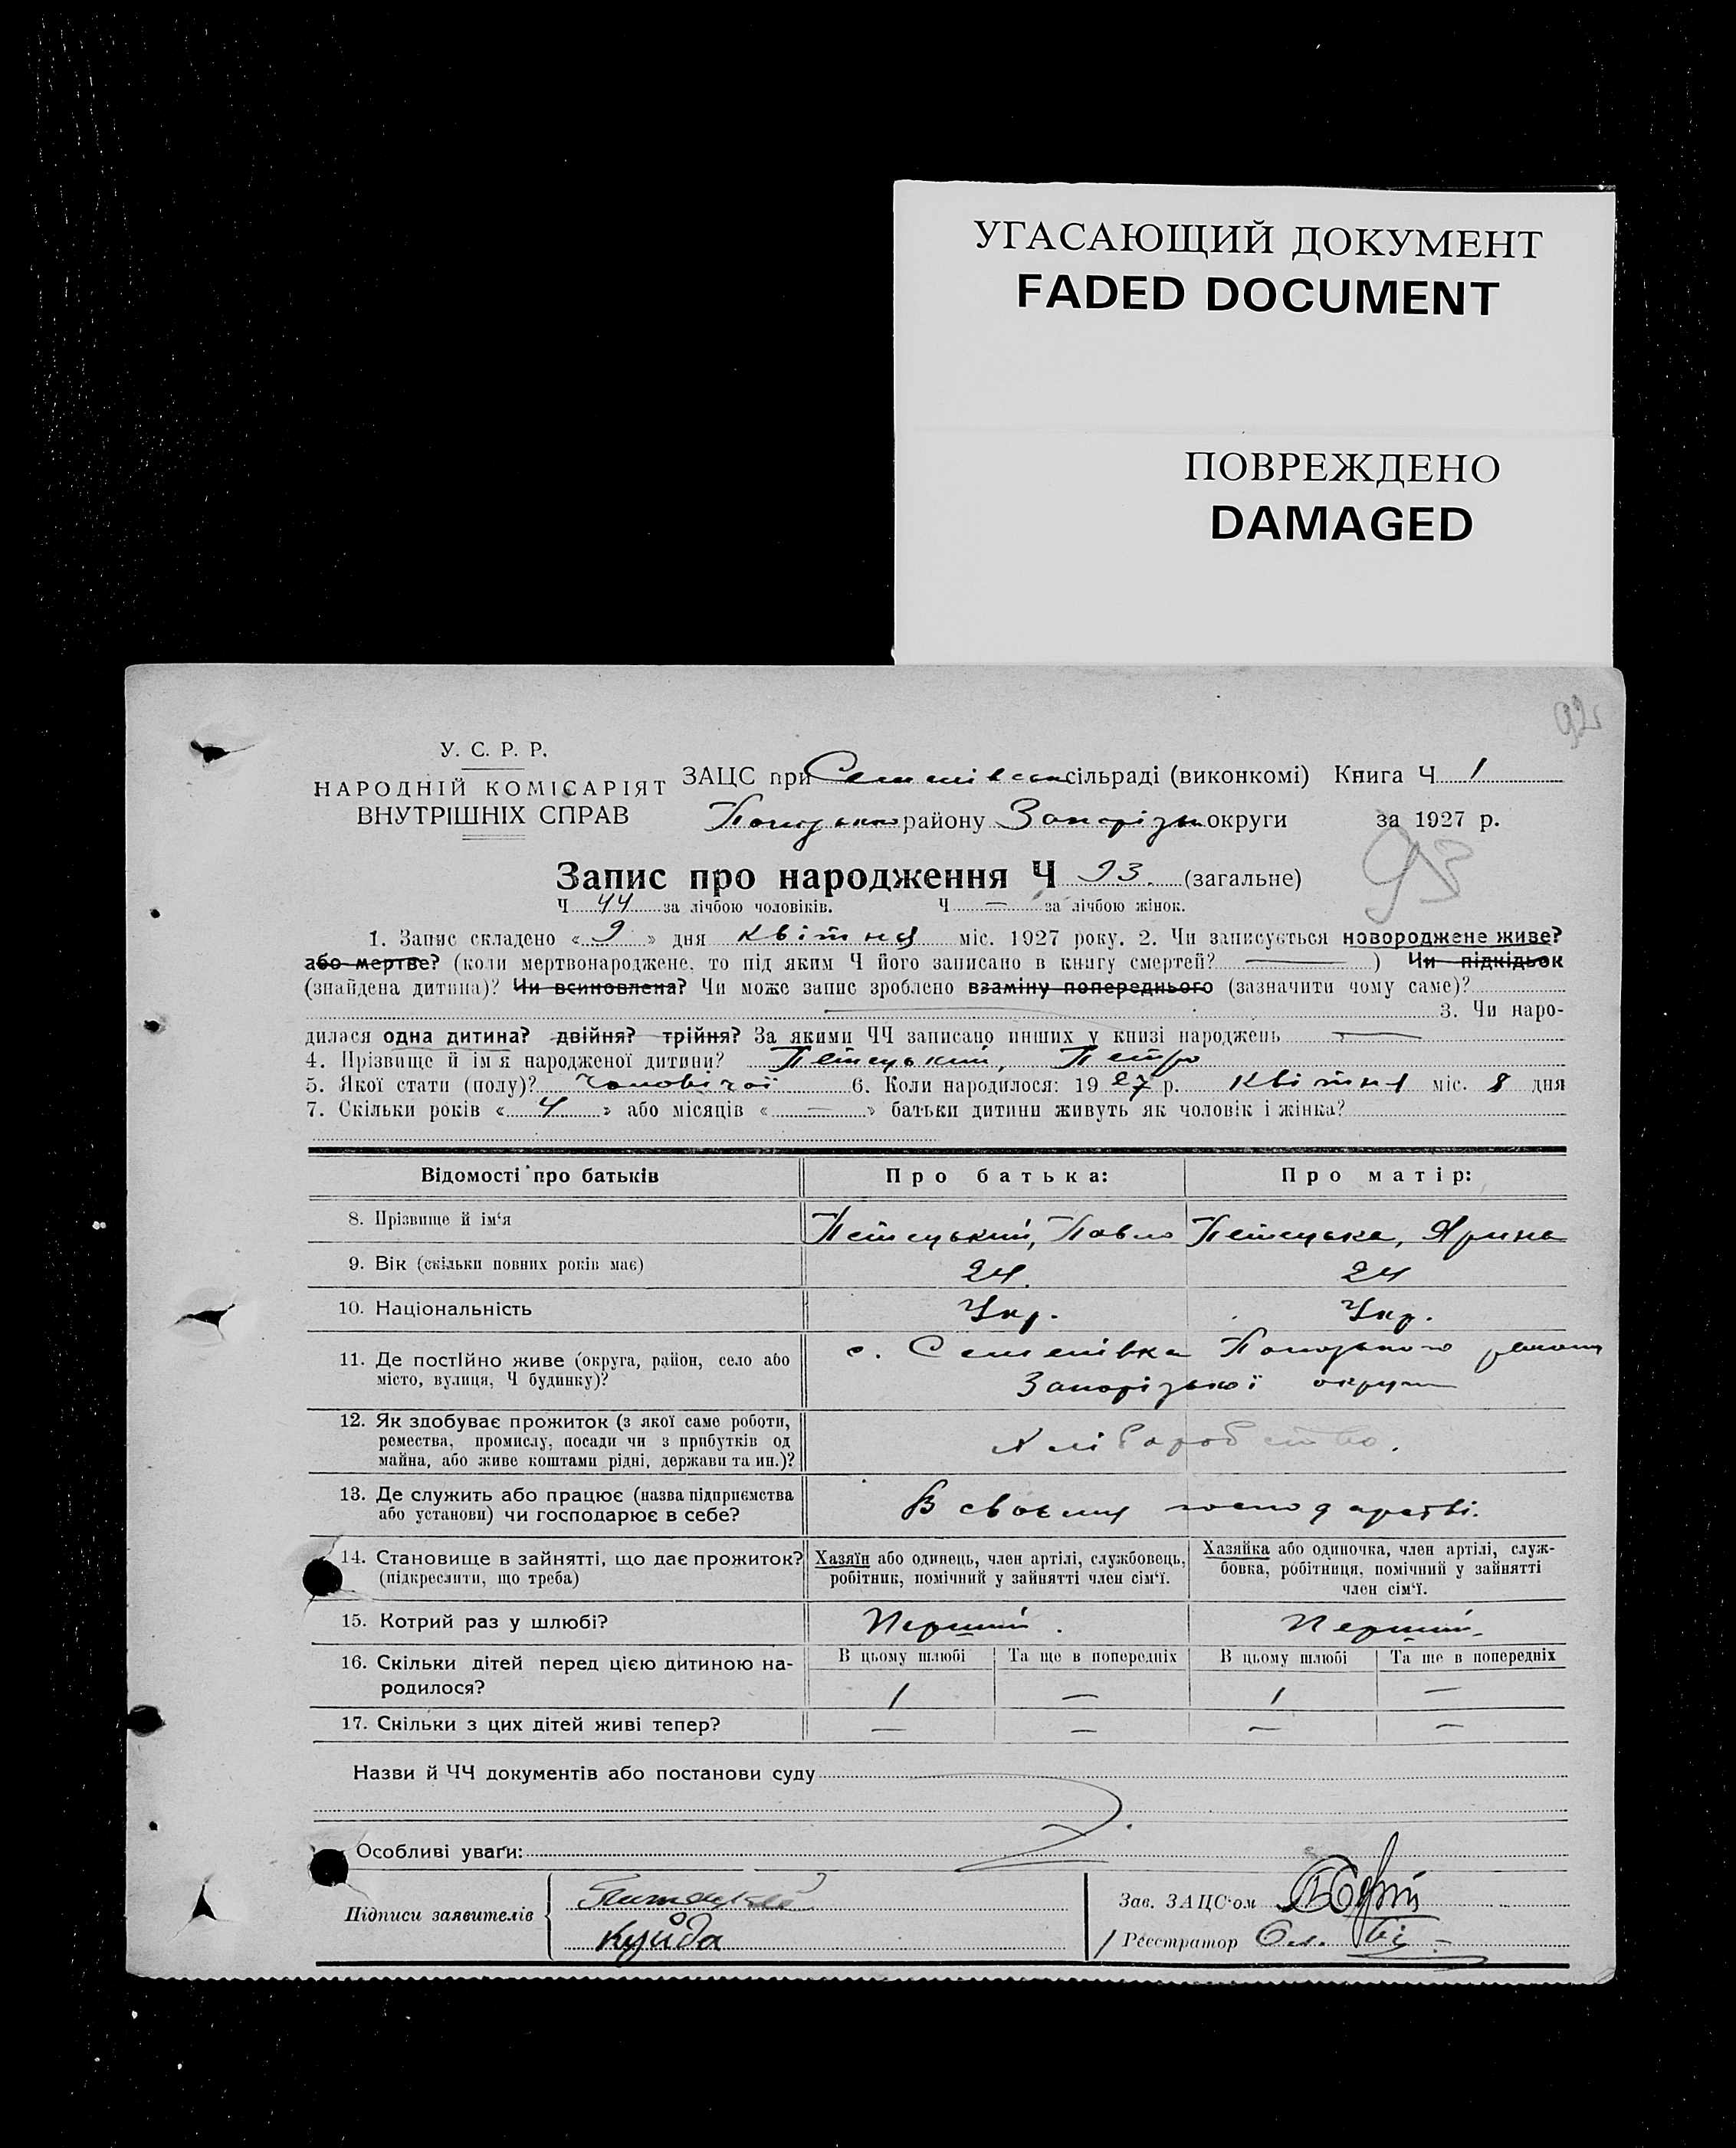 УГАСАЮЩИЙ ДОКУМЕНТ
FADED DOCUMENT
ПОВРЕЖДЕНО
DAMAGED
92
У. С. Р. Р.
НАРОДНІЙ КОМІСАРІЯТ
ВНУТРІШНІХ СПРАВ
ЗАЦС при сільраді (виконкомі) Книга Ч 1
району Запорізьк округи за 1927 р.
93
Запис про народження Ч 93. (загальне)
Ч 44 за лічбою чоловіків. Ч — за лічбою жінок.
1. Запис складено « 9 » дня квітня міс. 1927 року. 2. Чи записується новороджене живе?
або мертве? (коли мертвонароджене, то під яким Ч його записано в книгу смертей? — ) Чи підкідьок
(знайдена дитина)? Чи всиновлена? Чи може запис зроблено взаміну попереднього (зазначити чому саме)?
3. Чи наро-
дилася одна дитина? двійня? трійня? За якими ЧЧ записано инших у книзі народжень —
4. Прізвище й імя народженої дитини? Петецький, Петро
5. Якої стати (полу)? Чоловічої 6. Коли народилося: 19 27 р. квітня міс. 8 дня
7. Скільки років « 4 » або місяців « — » батьки дитини живуть як чоловік і жінка?
Відомості про батьків Про батька: Про матір:
8. Прізвище й ім‘я Петецький, Павло Петецька, Ярина
9. Вік (скільки повних років має) 24. 24
10. Національність Укр. Укр.
11. Де постійно живе (округа, район, село або с. Семенівка району
місто, вулиця, Ч будинку)? Запорізької округи
12. Як здобуває прожиток (з якої саме роботи,
ремества, промислу, посади чи з прибутків од Хліборобство.
майна, або живе коштами рідні, держави та ин.)?
13. Де служить або працює (назва підприємства В своєму господарстві.
або установи) чи господарює в себе?
14. Становище в зайнятті, що дає прожиток? Хазяїн або одинець, член артілі, службовець, Хазяйка або одиночка, член артілі, служ-
(підкреслити, що треба) робітник, помічний у зайнятті член сім‘ї. бовка, робітниця, помічний у зайнятті
член сім‘ї.
15. Котрий раз у шлюбі? Перший. Перший.
16. Скільки дітей перед цією дитиною на- В цьому шлюбі Та ще в попередніх В цьому шлюбі Та ще в попередніх
родилося? 1 — 1 —
17. Скільки з цих дітей живі тепер? — — — —
Назви й ЧЧ документів або постанови суду
Особливі уваги:
Підписи заявителів
Куйда
Зав. ЗАЦС‘ом
Реєстратор